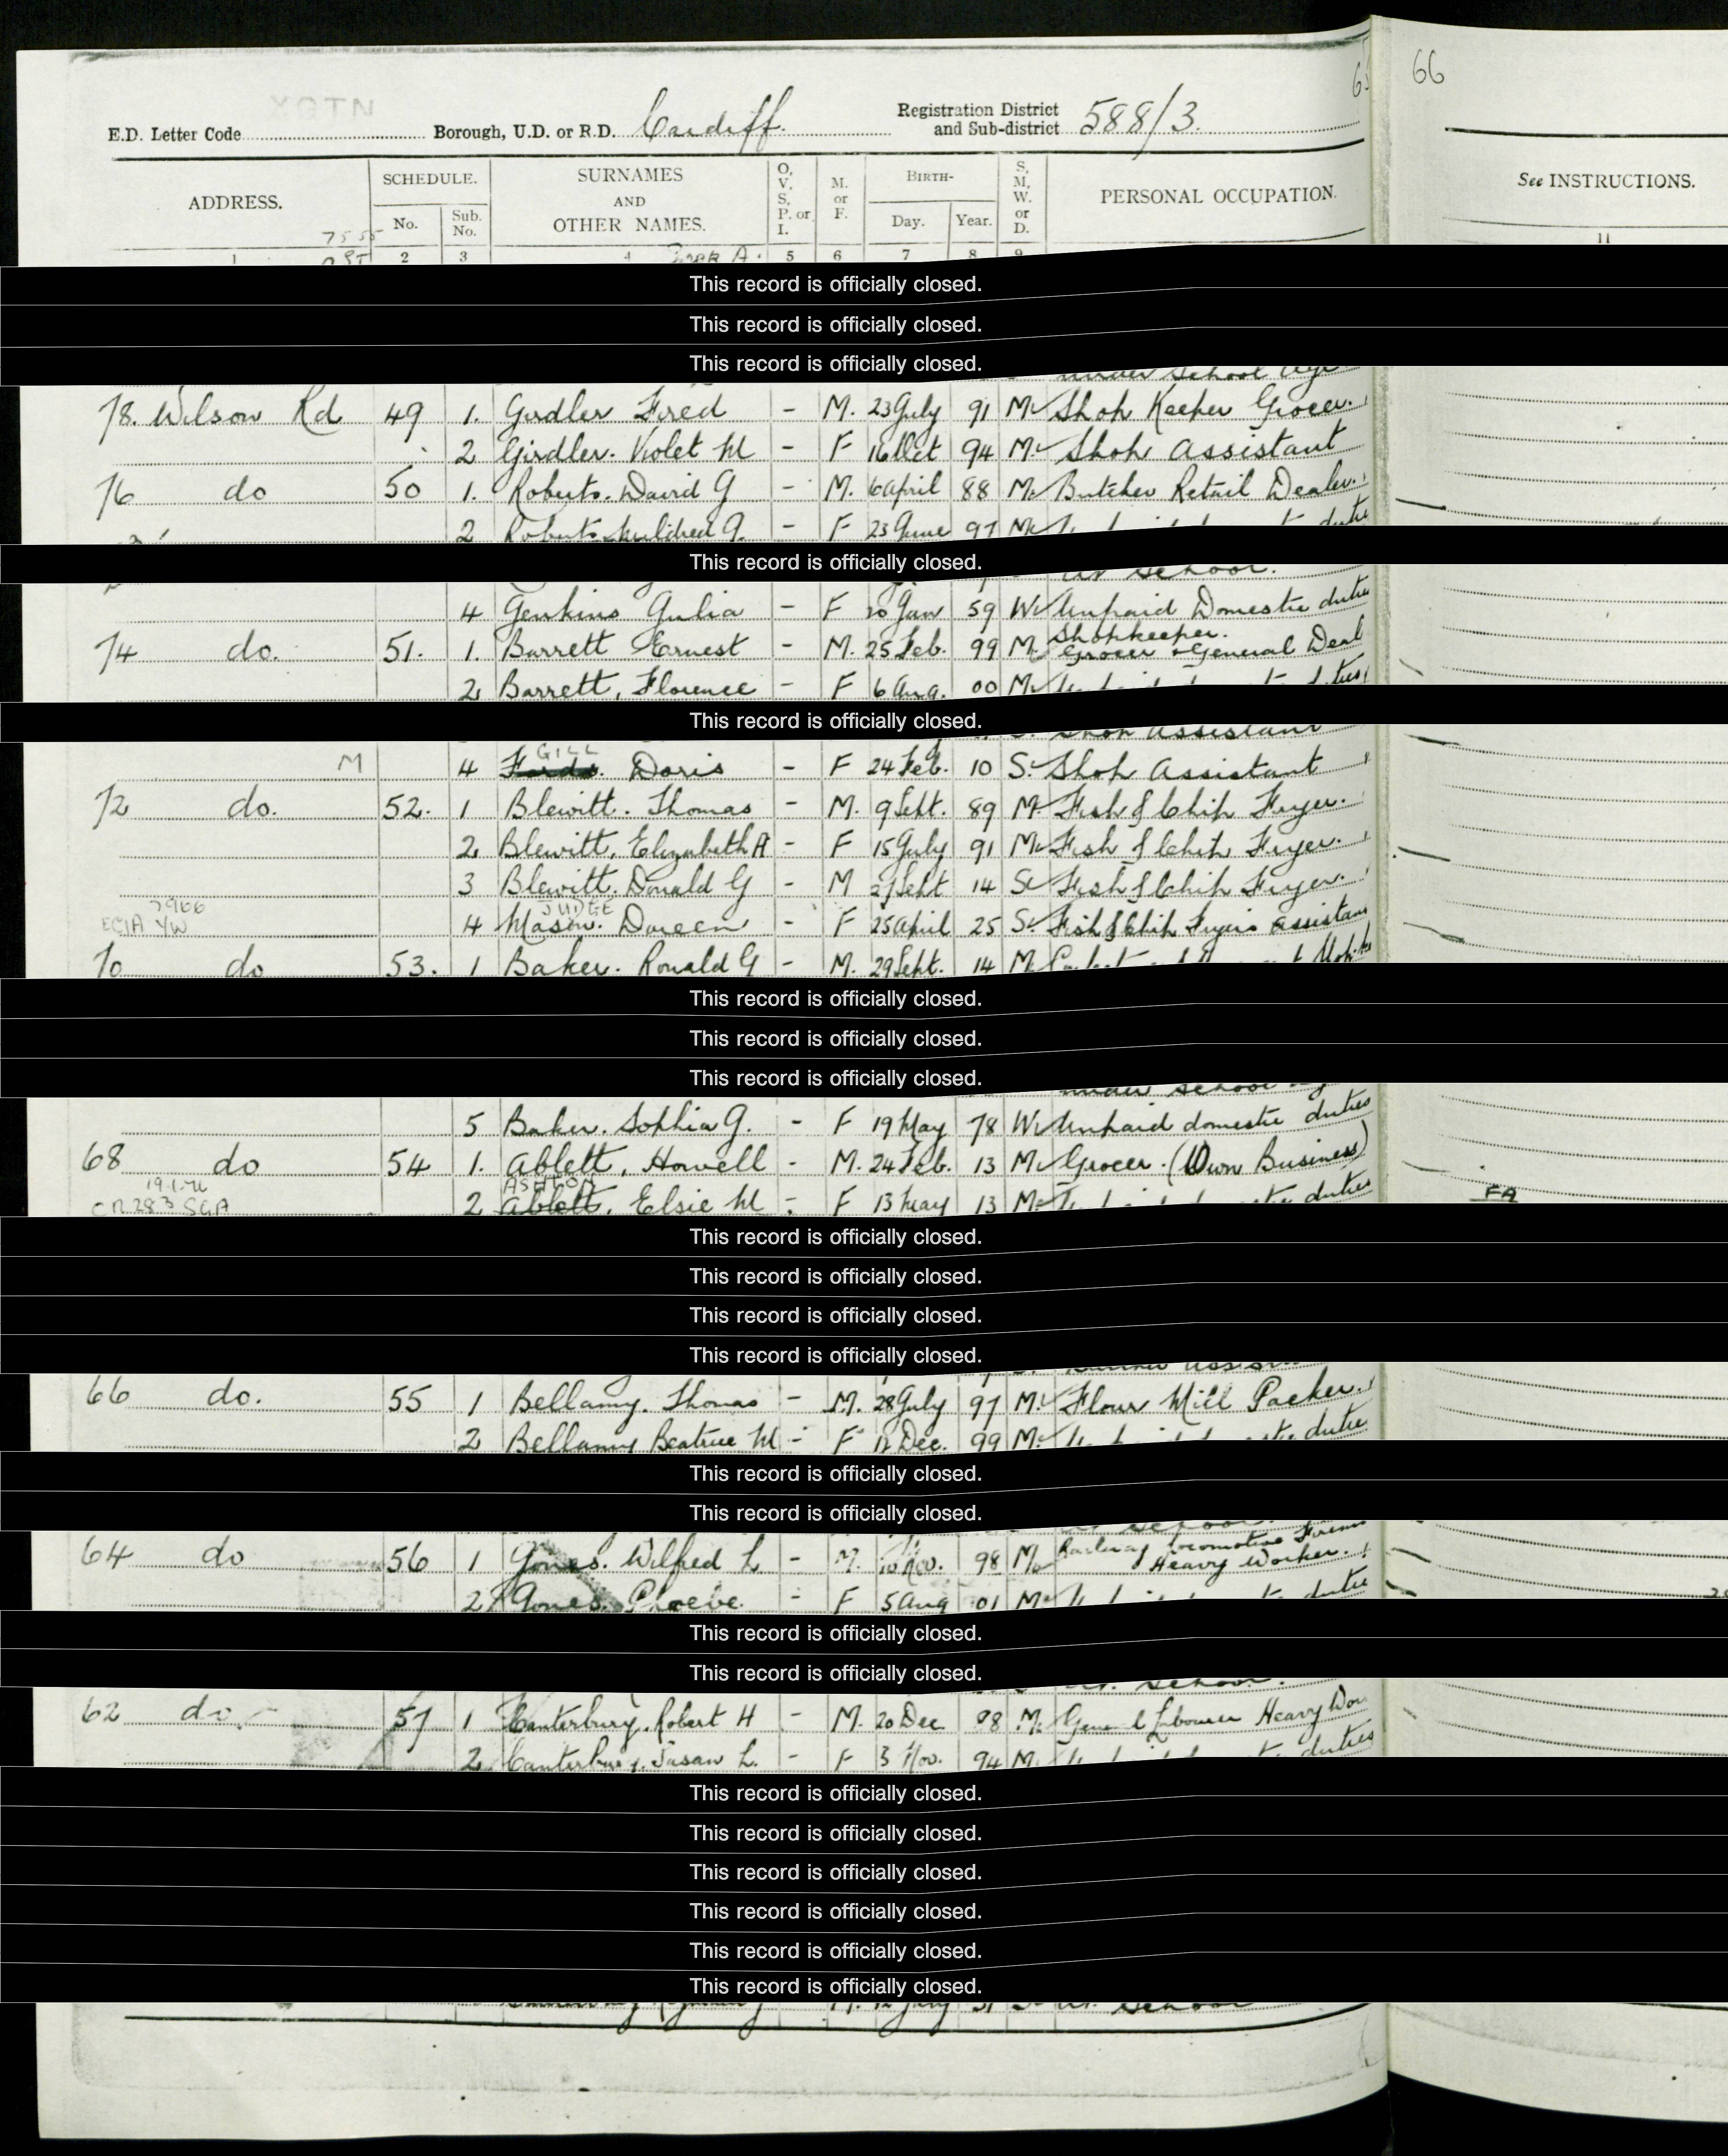 65 66
XGTN
E.D. Letter Code Borough, U.D. or R.D. Cardiff. Registration District and Sub-district 588/3.
ADDRESS. SCHEDULE. No. Sub. No. SURNAMES AND OTHER NAMES. O, V, S, P. or I. M. or F. BIRTH- Day. Year. S, M, W. or D. PERSONAL OCCUPATION. See INSTRUCTIONS.
1 2 3 4 5 6 7 8 9 11
This record is officially closed.
This record is officially closed.
This record is officially closed.
under School Age
78. Wilson Rd 49 1. Girdler Fred - M. 23 July 91 M. Shop Keeper Grocer.
2 Girdler. Violet M - F 16 Oct 94 M. Shop Assistant
76 do 50 1. Roberts. David G - M. 6 April 88 M. Butcher Retail Dealer.
2 Roberts. Mildred G. - F 23 June 97 M duties
This record is officially closed.
at School.
4 Jenkins Julia - F 20 Jan 59 W. Unpaid Domestic duties
74 do. 51. 1. Barrett Ernest - M. 25 Feb. 99 M. Shopkeeper. Grocer & General Deal
2 Barrett, Florence - F 6 Aug. 00 M. duties
This record is officially closed.
Shop Assistant
GILL
M 4 Fords. Doris - F 24 Feb. 10 S. Shop Assistant
72 do. 52. 1 Blewitt. Thomas - M. 9 Sept. 89 M. Fish & Chip Fryer.
2 Blewitt, Elizabeth A - F 15 July 91 M. Fish & Chip Fryer.
3 Blewitt. Donald G - M 27 Sept 14 S. Fish & Chip Fryer.
JUDGE
4 Mason. Doreen - F 25 April 25 S. Fish & Chip Fryers Assistant
70 do 53. 1 Baker. Ronald G - M. 29 Sept. 14 M.
This record is officially closed.
This record is officially closed.
This record is officially closed.
under School
5 Baker. Sophia G. - F 19 May 78 W. Unpaid domestic duties
68 do 54 1. Ablett, Howell - M. 24 Feb. 13 M. Grocer. (Own Business)
ASHTON
2 Ablett, Elsie M - F 13 May 13 M. duties FA
This record is officially closed.
This record is officially closed.
This record is officially closed.
This record is officially closed.
66 do. 55 1 Bellamy. Thomas - M. 28 July 97 M. Flour Mill Packer.
2 Bellamy Beatrice M - F 12 Dec. 99 M. duties
This record is officially closed.
This record is officially closed.
64 do 56 1 Jones. Wilfred L - M. 10 Nov. 98 M. Railway locomotive Fireman Heavy Worker.
2 Jones. Phoebe. - F 5 Aug 01 M. duties
This record is officially closed.
This record is officially closed.
at School.
62 do. 57 1 Canterbury, Robert H - M. 20 Dec 98 M. General Labourer Heavy Wor
2 Canterbury, Susan L. - F 3 Nov. 94 M. duties
This record is officially closed.
This record is officially closed.
This record is officially closed.
This record is officially closed.
This record is officially closed.
This record is officially closed.